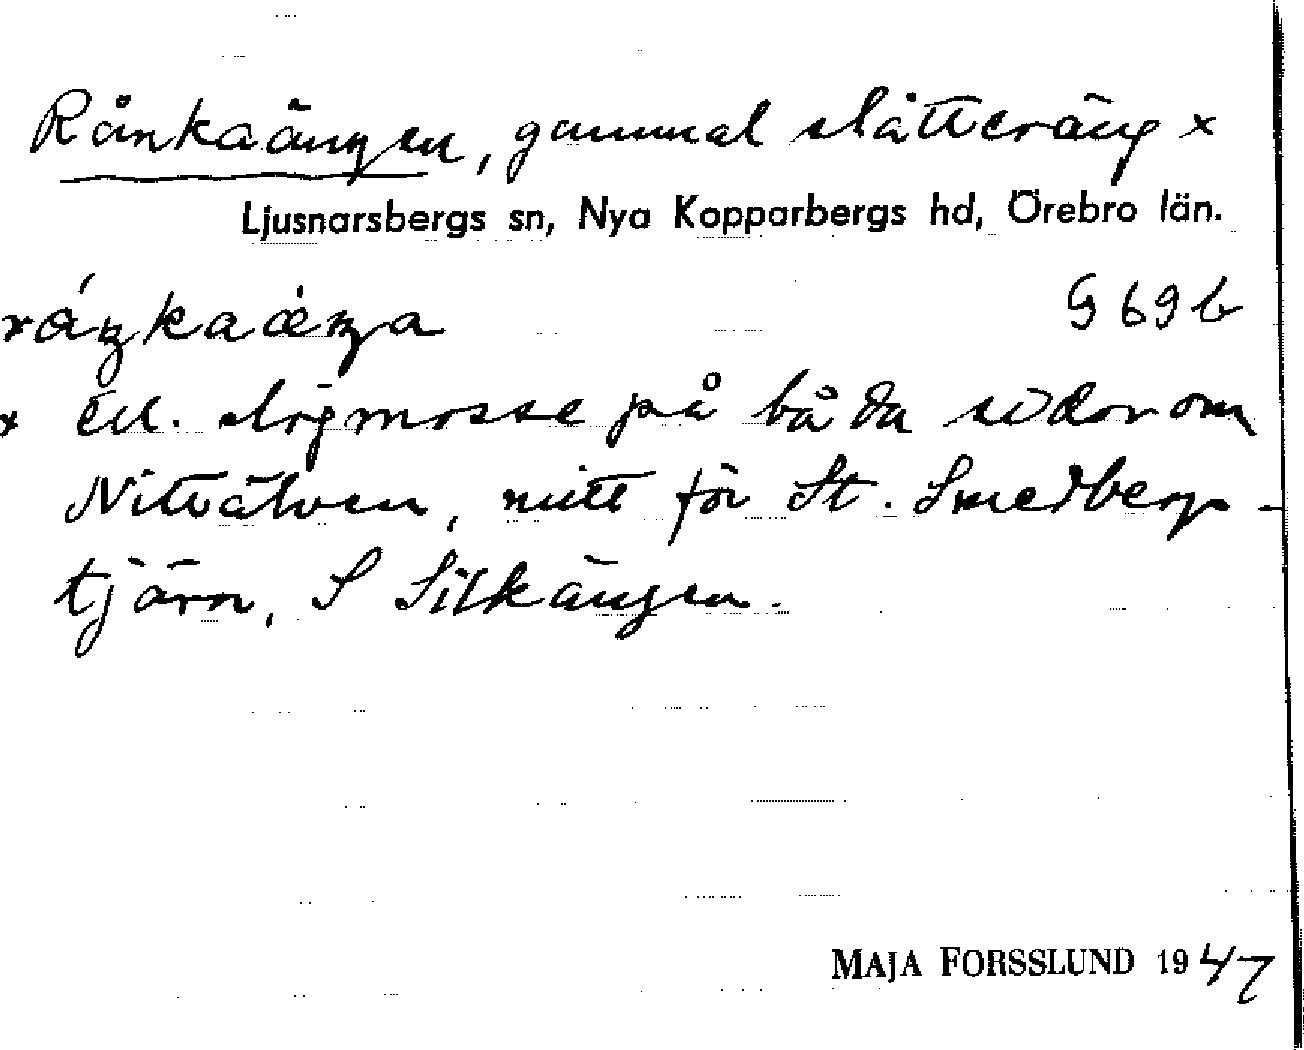 Rånkaängen, gammal slåtteräng x
Ljusnarsbergs sn, Nya Kopparbergs hd, Örebro län.
råŋkaæŋa G 69 b
x ell. slogmosse på båda sidor om
Nittälven, mitt för St. Smedberg-
tjärn, S Silkängen.
MAJA FORSSLUND 1947